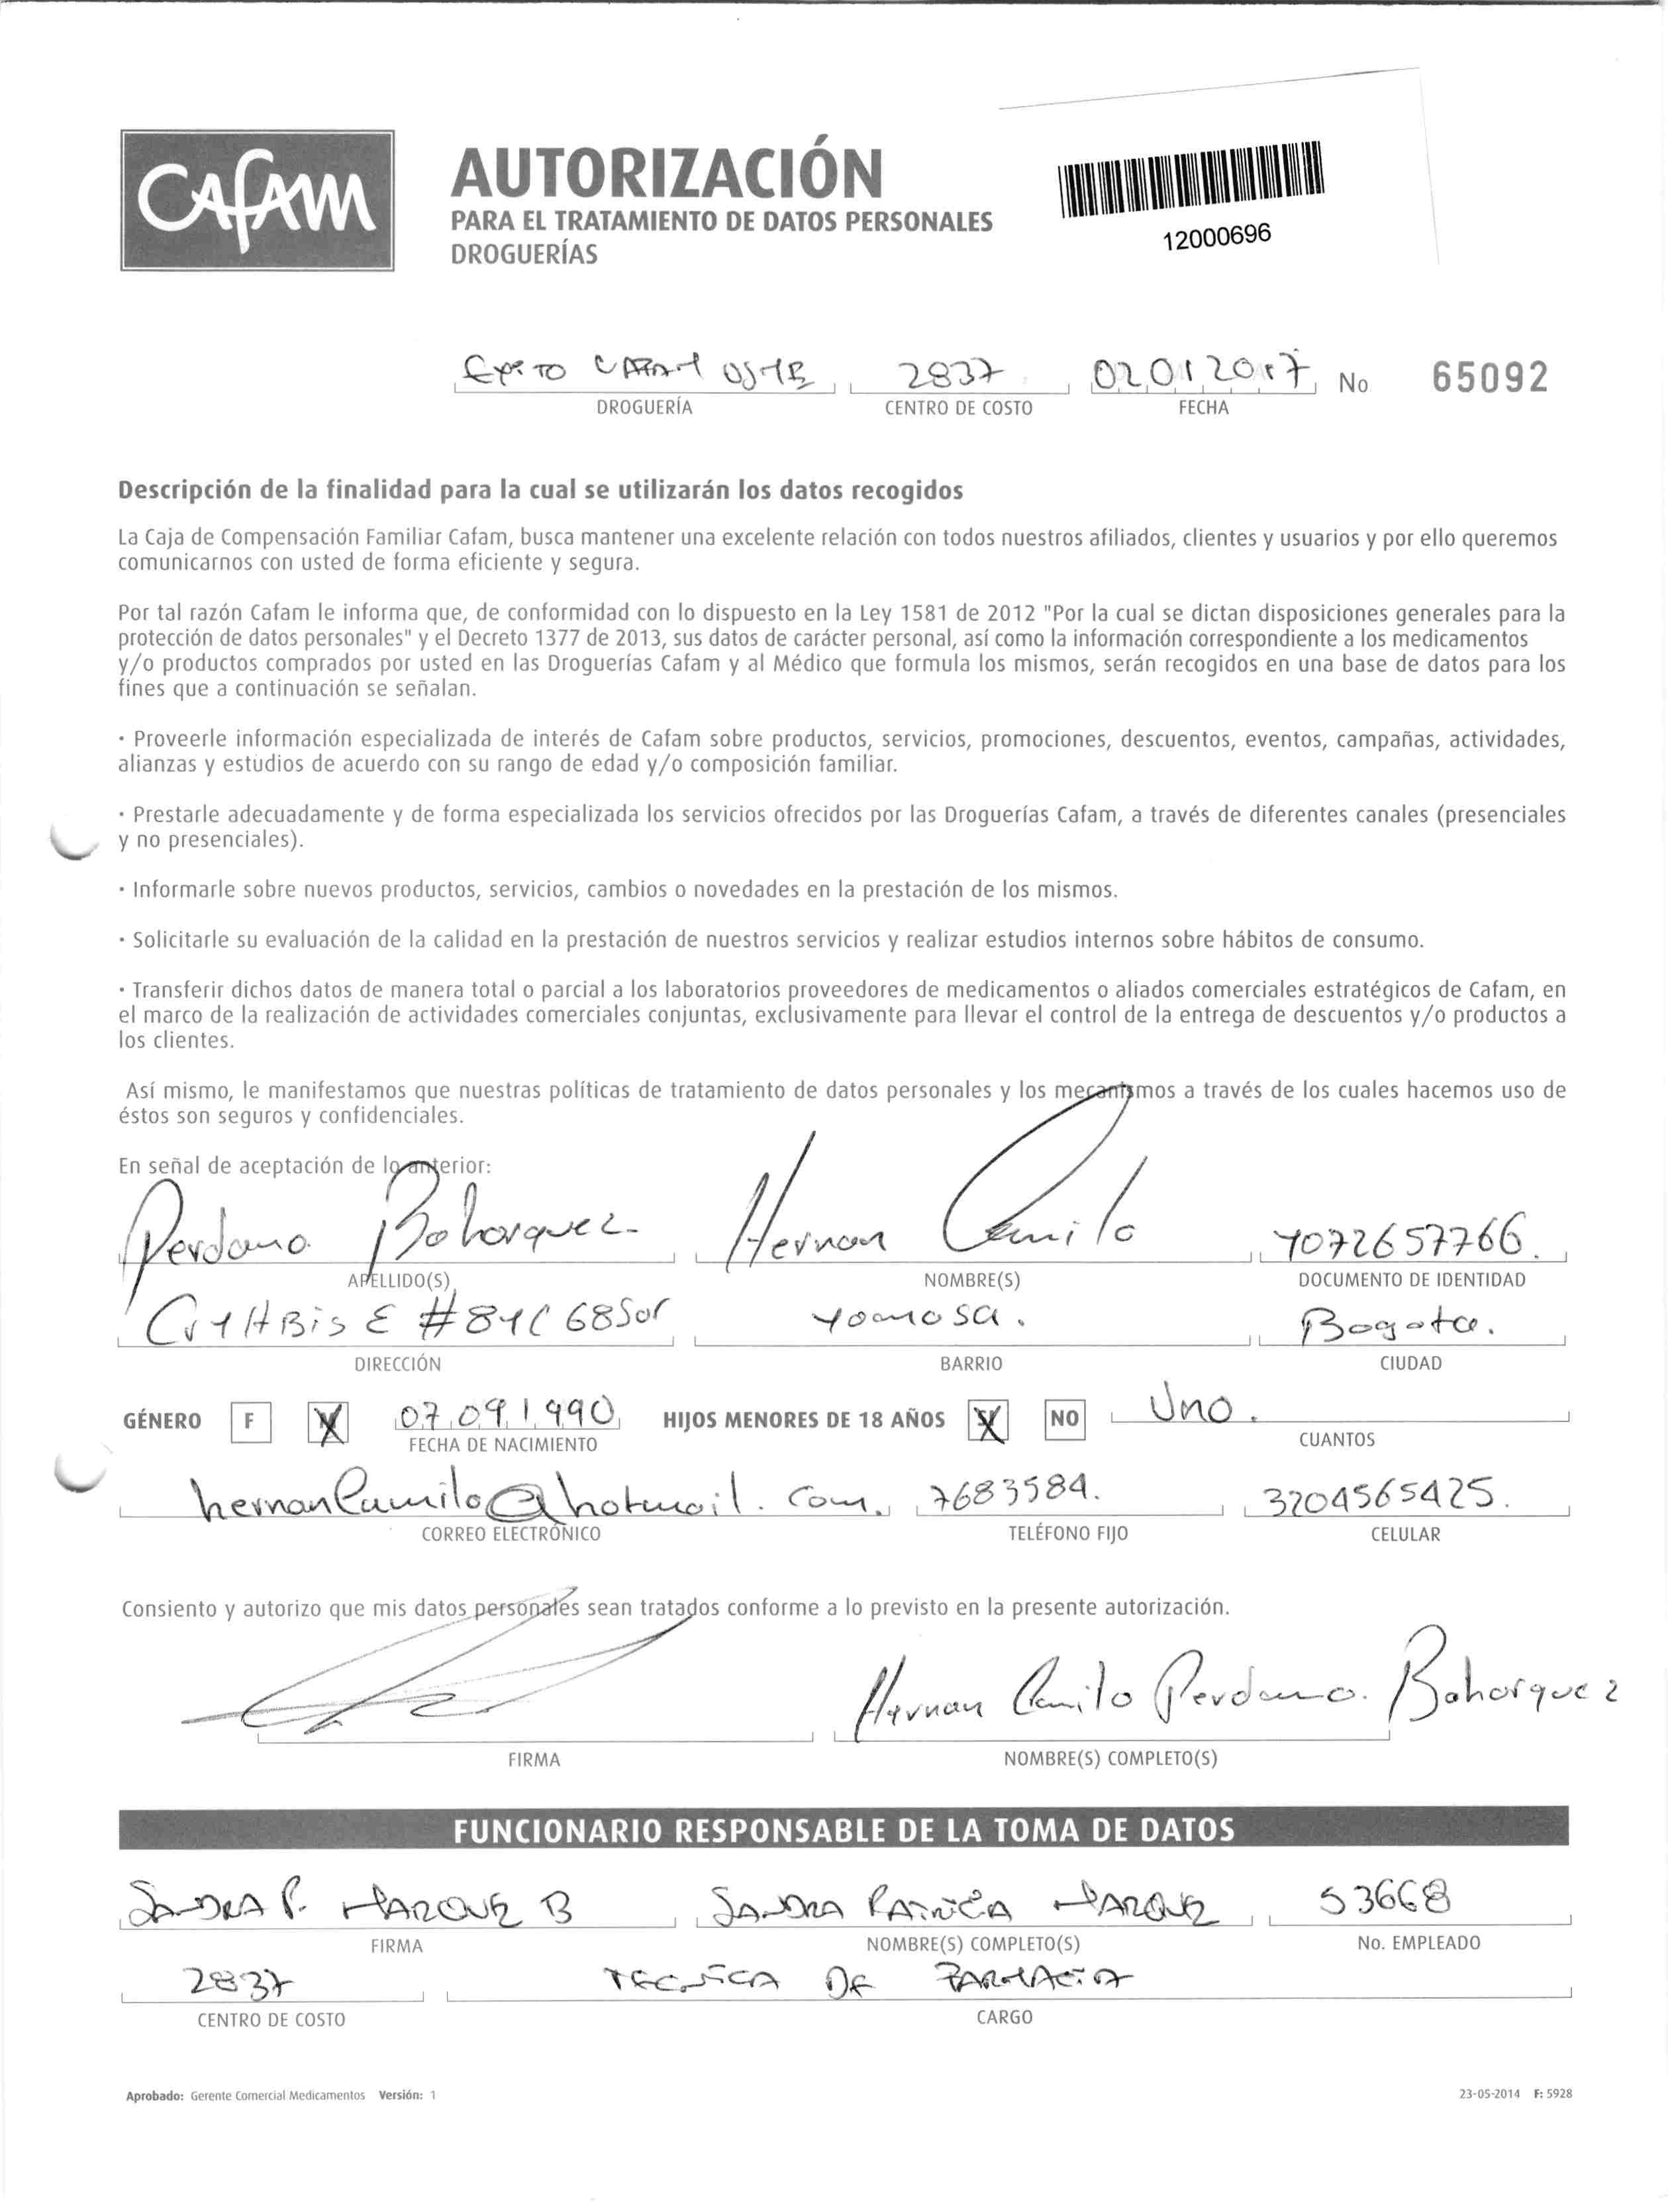 Cafam
AUTORIZACIÓN
PARA EL TRATAMIENTO DE DATOS PERSONALES
DROGUERÍAS
12000696
2837 02012017 No 65092
DROGUERÍA CENTRO DE COSTO FECHA
Descripción de la finalidad para la cual se utilizarán los datos recogidos
La Caja de Compensación Familiar Cafam, busca mantener una excelente relación con todos nuestros afiliados, clientes y usuarios y por ello queremos
comunicarnos con usted de forma eficiente y segura.
Por tal razón Cafam le informa que, de conformidad con lo dispuesto en la Ley 1581 de 2012 "Por la cual se dictan disposiciones generales para la
protección de datos personales" y el Decreto 1377 de 2013, sus datos de carácter personal, así como la información correspondiente a los medicamentos
y/o productos comprados por usted en las Droguerías Cafam y al Médico que formula los mismos, serán recogidos en una base de datos para los
fines que a continuación se señalan.
· Proveerle información especializada de interés de Cafam sobre productos, servicios, promociones, descuentos, eventos, campañas, actividades,
alianzas y estudios de acuerdo con su rango de edad y/o composición familiar.
· Prestarle adecuadamente y de forma especializada los servicios ofrecidos por las Droguerías Cafam, a través de diferentes canales (presenciales
y no presenciales).
· Informarle sobre nuevos productos, servicios, cambios o novedades en la prestación de los mismos.
· Solicitarle su evaluación de la calidad en la prestación de nuestros servicios y realizar estudios internos sobre hábitos de consumo.
· Transferir dichos datos de manera total o parcial a los laboratorios proveedores de medicamentos o aliados comerciales estratégicos de Cafam, en
el marco de la realización de actividades comerciales conjuntas, exclusivamente para llevar el control de la entrega de descuentos y/o productos a
los clientes.
Así mismo, le manifestamos que nuestras políticas de tratamiento de datos personales y los mecanismos a través de los cuales hacemos uso de
éstos son seguros y confidenciales.
En señal de aceptación de lo anterior:
Perdomo Bohorquez Hernan Camilo 1072657766.
APELLIDO(S) NOMBRE(S) DOCUMENTO DE IDENTIDAD
Cr 1 H Bis E #81C 68Sur Yomasa. Bogota.
DIRECCIÓN BARRIO CIUDAD
GÉNERO F M 07.09.1990 HIJOS MENORES DE 18 AÑOS SI NO Uno.
FECHA DE NACIMIENTO CUANTOS
hernanCamilo@hotmail.com. 7683584. 3204565425.
CORREO ELECTRÓNICO TELÉFONO FIJO CELULAR
Consiento y autorizo que mis datos personales sean tratados conforme a lo previsto en la presente autorización.
Hernan Camilo Perdomo. Bohorquez
FIRMA NOMBRE(S) COMPLETO(S)
FUNCIONARIO RESPONSABLE DE LA TOMA DE DATOS
SANDRA P. MARQUEZ B SANDRA PATRICIA MARQUEZ 53668
FIRMA NOMBRE(S) COMPLETO(S) No. EMPLEADO
2837 TECNICA DE FARMACIA
CENTRO DE COSTO CARGO
Aprobado: Gerente Comercial Medicamentos Versión: 1 23-05-2014 F: 5928